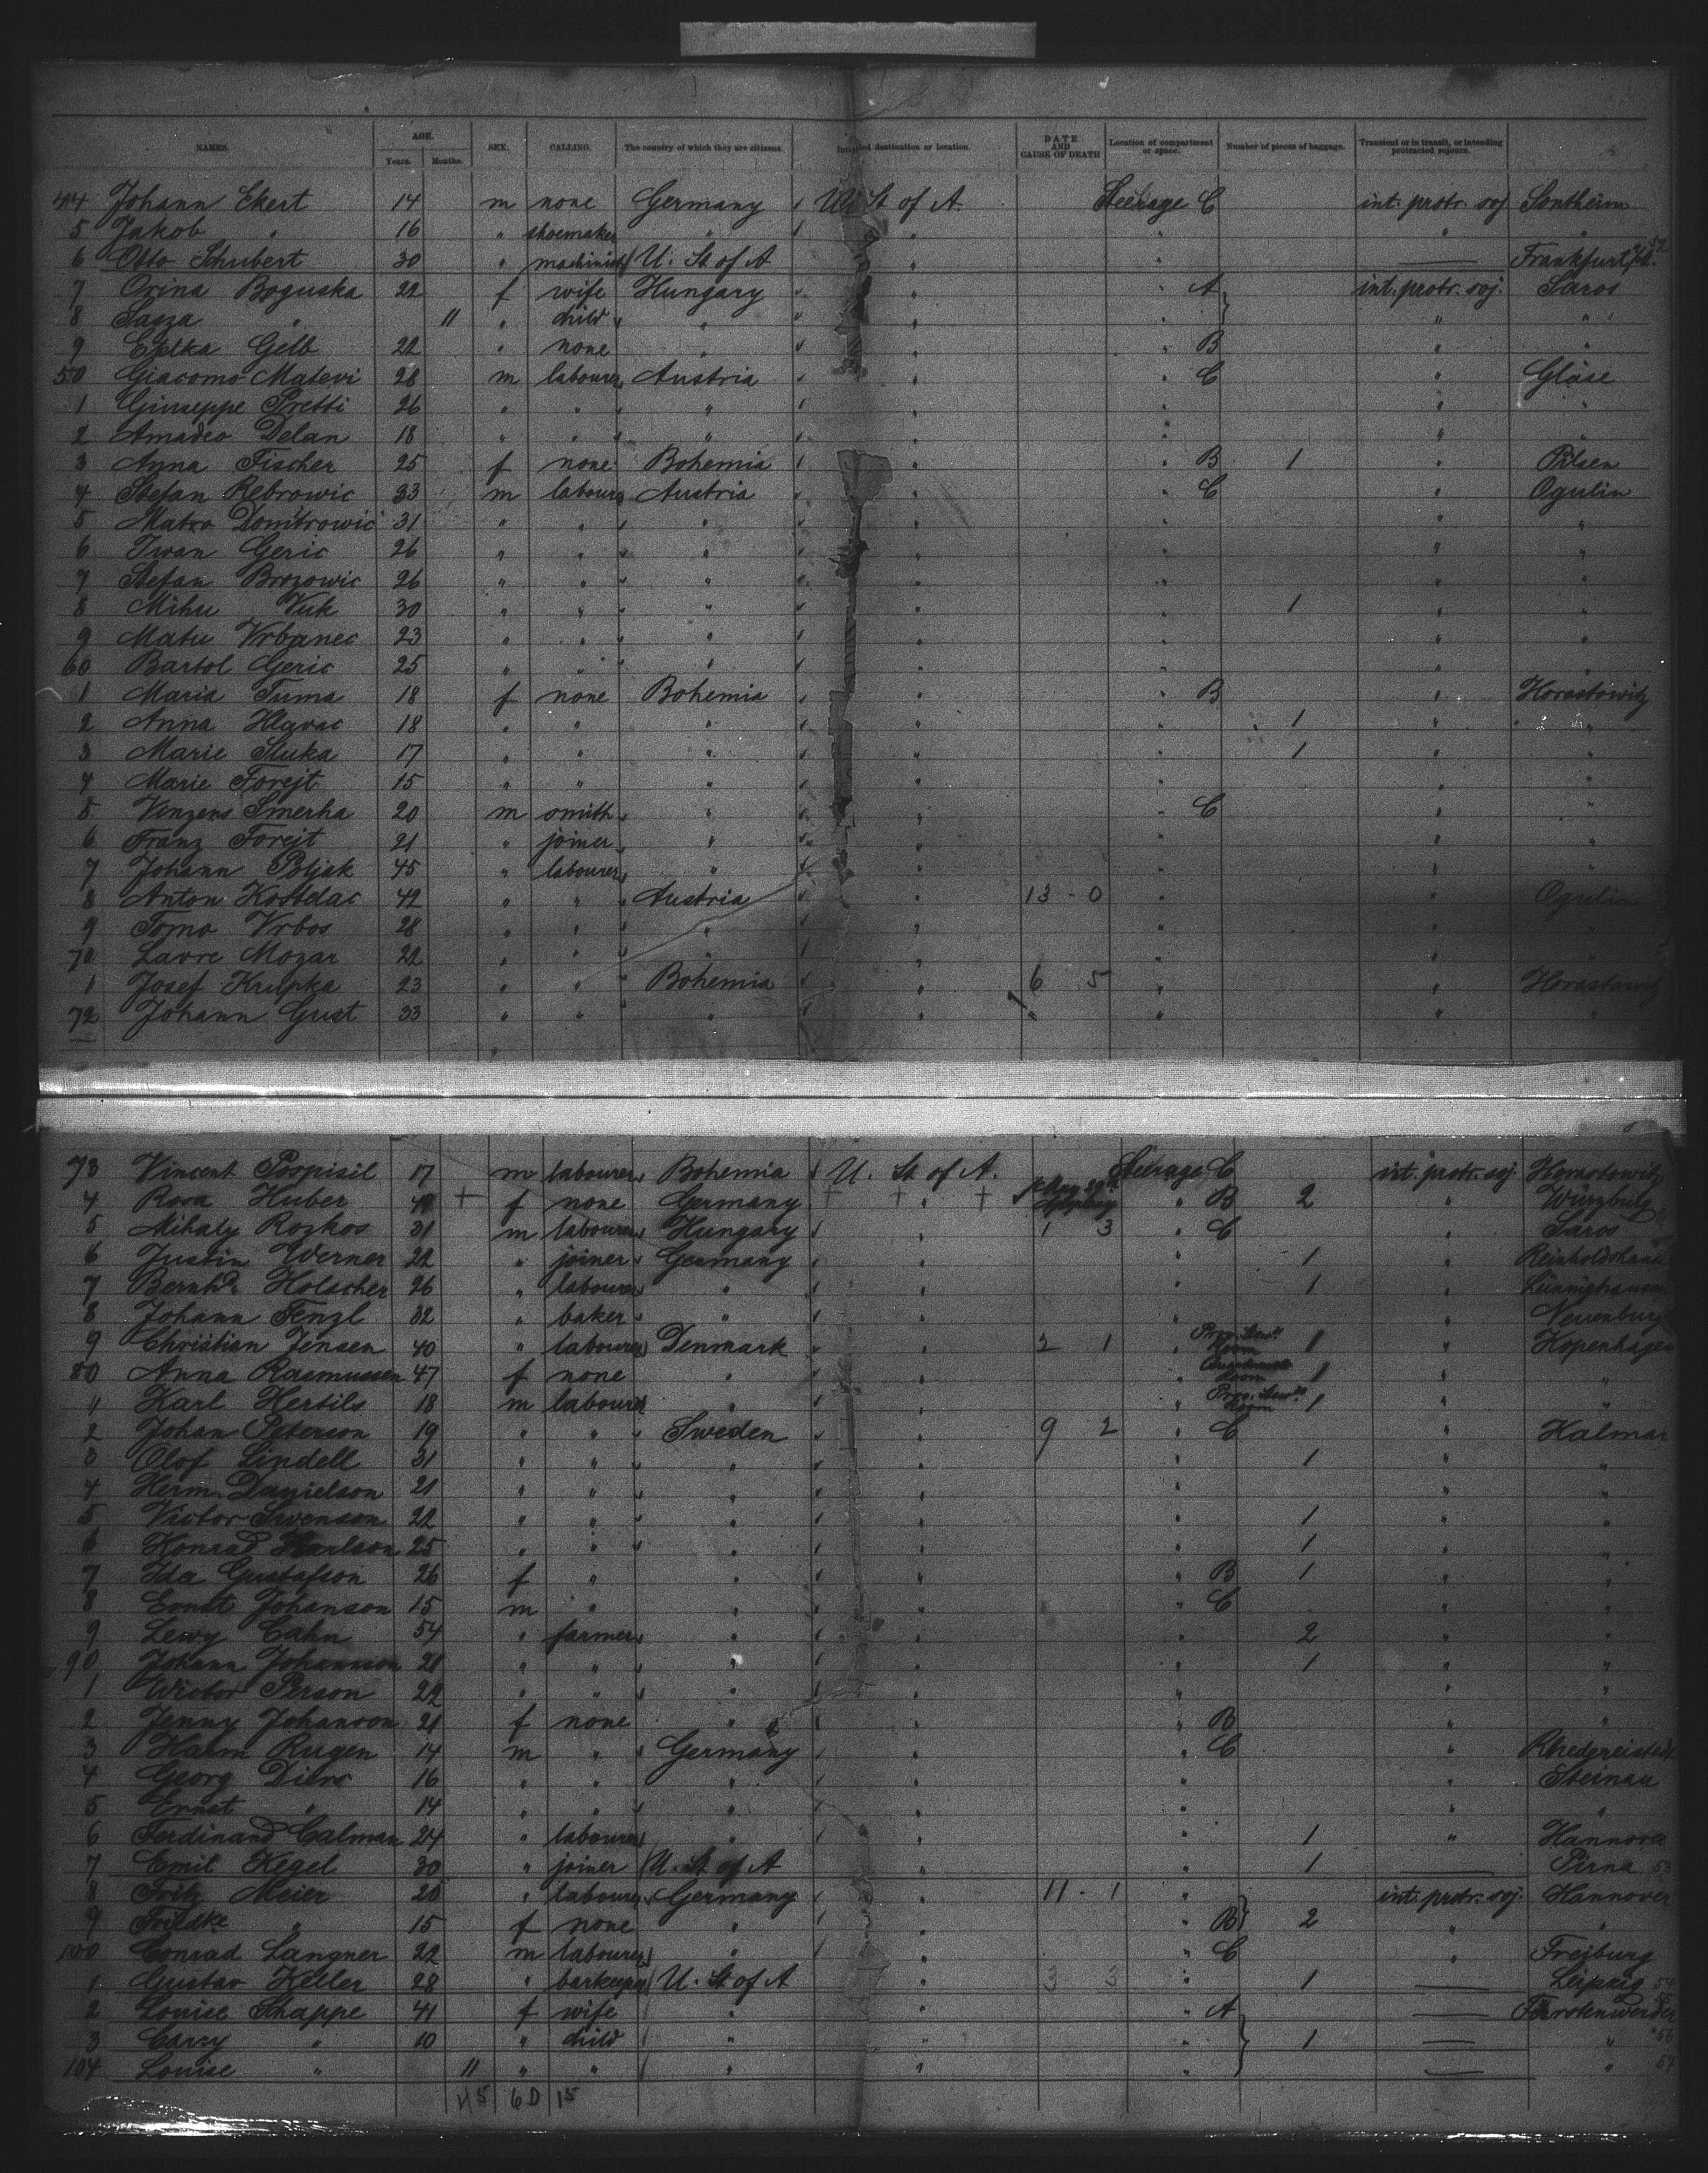 NAMES. AGE. Years. Months. SEX. CALLING. The country of which they are citizens. Intended destination or location. DATE AND CAUSE OF DEATH Location of compartment or space. Number of pieces of baggage. Transient or in transit, or intending protracted sojourn.
44 Johann Ekert 14 m none Germany U. St of A. Steerage C int. protr. soj Sontheim
5 Jakob " 16 " shoemaker " " " " "
6 Otto Schubert 30 " machinist U. St of A " " — Frankfurt 52
7 Orina Boguska 22 f wife Hungary " " A int. protr. soj. Saros
8 " 11 " child " " " " "
9 Gelb 22 " none " " " B " "
50 Giacomo Matevi 28 m labourer Austria " " C " Gläse
1 Giuseppe Pretti 26 " " " " " " "
2 Amadeo Delan 18 " " " " " " "
3 Anna Fischer 25 f none Bohemia " " B 1 " Pilsen
4 Stefan Rebrowic 33 m labourer Austria " " C " Ogulin
5 Mato Domitrowic 31 " " " " " " "
6 Iwan Geric 26 " " " " " " "
7 Stefan Brozowic 26 " " " " " " "
8 Mihu Vuk 30 " " " " " 1 " "
9 Matu Vrbanec 23 " " " " " " "
60 Bartol Geric 25 " " " " " " "
1 Maria Tuma 18 f none Bohemia " " B " Horastowitz
2 Anna Hlavac 18 " " " " " 1 " "
3 Marie Sluka 17 " " " " " 1 " "
4 Marie Forejt 15 " " " " " " "
5 Vinzens Smerha 20 m smith " " " C " "
6 Franz Forejt 21 " joiner " " " " "
7 Johann Poljak 45 " labourer " " " " "
8 Anton Kostelac 42 " " Austria " 13 - 0 " " Ogulin
9 Tomo Vrbos 28 " " " " " " "
70 Lavre Mozar 22 " " " " " " "
1 Josef Krupka 23 " " Bohemia " 6 5 " " Horastowitz
72 Johann Gust 33 " " " " " " "
73 Vincent Pospisil 17 m labourer Bohemia U. St of A. Steerage C int. protr. soj Horastowitz
4 Rosa Huber + f none Germany + " + + " B 2 " Wurzburg
5 Mihaly Rozkos 31 m labourer Hungary " 1 3 " C " Saros
6 Justin Werner 22 " joiner Germany " " 1 "
7 Bernhd. Holscher 26 " labourer " " " 1 "
8 Johann Fenzl 32 " baker " " " " Neuenburg
9 Christian Jensen 40 " labourer Denmark " 2 1 " Prov. Stew. Room 1 " Kopenhagen
80 Anna Rasmussen 47 f none " " " Room 1 " "
" Karl Hertils 18 m labourer " " " Prov. Stew. Room 1 " "
2 Johan Peterson 19 " " Sweden " 9 2 " C " Kalmar
3 Olof Lindell 31 " " " " " 1 " "
4 Herm. Danielson 21 " " " " " " "
5 Victor Swenson 22 " " " " " 1 " "
6 Konrad Karlson 25 " " " " " 1 " "
7 Ida Gustafson 26 f " " " " B 1 " "
8 Ernst Johanson 15 m " " " " C " "
9 Lewy Cahn 54 " farmer " " " 2 " "
90 Johann Johannson 21 " " " " " 1 " "
1 Wictor Person 22 " " " " " " "
2 Jenny Johanson 21 f none " " " B " "
3 Harm Rugen 14 m " Germany " " C "
4 Georg Diers 16 " " " " " " Steinau
5 Ernst " 14 " " " " " " "
6 Ferdinand Calman 24 " labourer " " " 1 " Hannover
7 Emil Kegel 30 " joiner U. St of A " " 1 — Pirna 53
8 Fritz Meier 20 " labourer Germany " 11 - 1 " int. protr. soj. Hannover
9 " 15 f none " " " B 2 " "
100 Conrad Langner 22 m labourer " " " C " Freiburg
1 Gustav Keller 28 " barkeeper U. St of A " 3 3 " 1 — Leipzig 54
2 Louise Schappe 41 f wife " " " A — Fürstenwerder 55
3 Carry " 10 " child " " " 1 — " 56
104 Louise " 11 " " " " " — " 57
45 6D 15